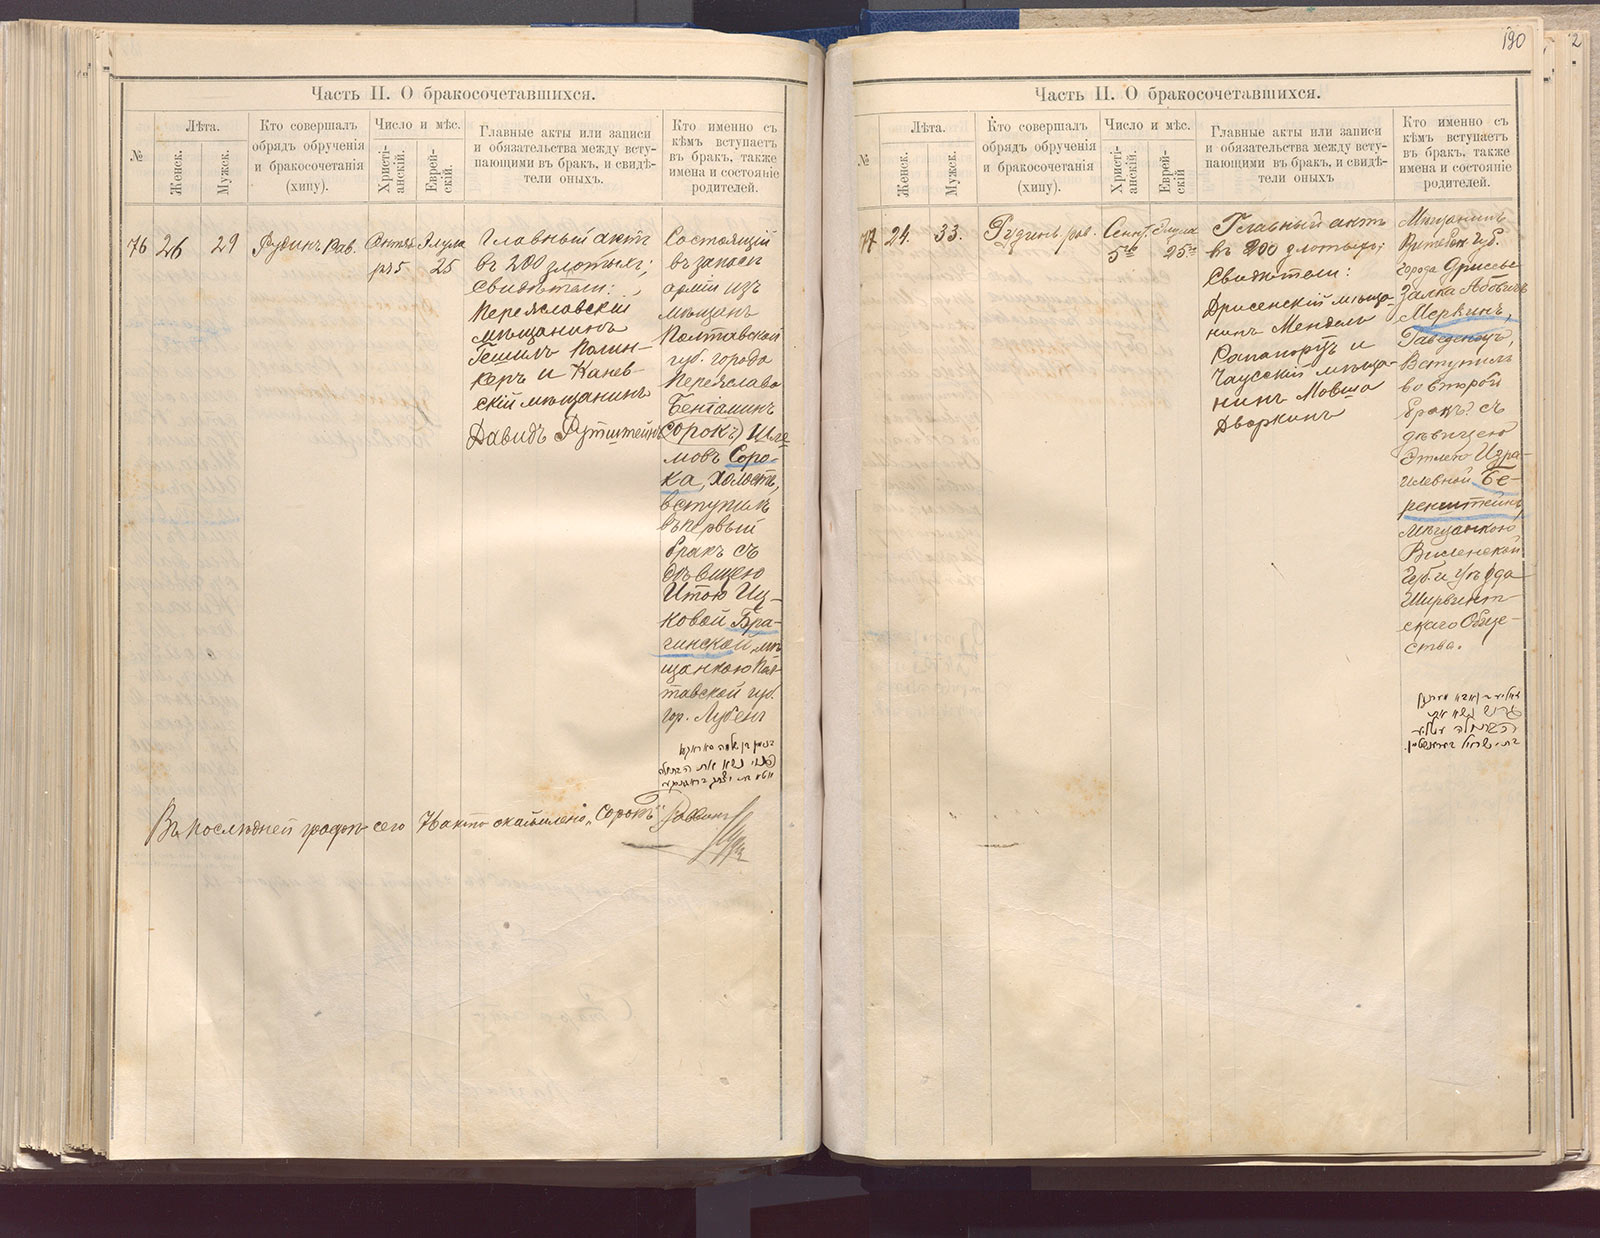 Часть II. О бракосочетавшихся.
№
Лѣта.
Женск.
Мужск.
Кто совершалъ
обрядъ обрученія
и бракосочетанія
(хипу).
Число и мѣс.
Христі-
анскій.
Еврей-
скій.
Главные акты или записи
и обязательства между всту-
пающими въ бракъ, и свидѣ-
тели оныхъ.
Кто именно съ
кѣмъ вступаетъ
въ бракъ, также
имена и состояніе
родителей.
76
26
29
Рубинъ Рав.
Сентяб
ря 5
Элула
25
Главный актъ
въ 200 злотыхъ;
Свидѣтели:
Переяславскій
мѣщанинъ
Гешилъ Полин-
керъ и Канев-
скій мѣщанинъ
Давидъ Рутштейнъ
Состоящій
въ запасѣ
арміи изъ
мѣщанъ
Полтавской
губ. города
Переяслава
Беніаминъ
(Сорокъ) Шле
мовъ Соро-
ка, холостъ,
вступилъ
въ первый
бракъ съ
дѣвицею
Итою Иц-
ковой Бра-
гинской, мѣ
щанкою Пол
тавской губ.
гор. Лубенъ
Въ послѣдней графѣ сего 76 акта оскоблено „Сорокъ“ Раввинъ
190
Часть II. О бракосочетавшихся.
№
Лѣта.
Женск.
Мужск.
Кто совершалъ
обрядъ обрученія
и бракосочетанія
(хипу).
Число и мѣс.
Христі-
анскій.
Еврей-
скій
Главные акты или записи
и обязательства между всту-
пающими въ бракъ, и свидѣ-
тели оныхъ
Кто именно съ
кѣмъ вступаетъ
въ бракъ, также
имена и состояніе
родителей.
77
24.
33.
рав.
Сент.
5го
Элула
25го
Главный актъ
въ 200 злотыхъ;
Свидѣтели:
Дрисенскій мѣща-
нинъ Мендель
Рапапортъ и
Чаусскій мѣща-
нинъ Мовша
Дворкинъ
Мѣщанинъ
Витебск. губ.
города Дриссы
Залка Абовичъ
Меркинъ,
Разведенецъ,
Вступилъ
во второй
бракъ съ
дѣвицею
Этлею Изра-
илевной Бе-
ренштейнъ,
Мѣщанкою
Виленской
Губ. и Уѣзда
Ширвинт-
скаго Обще-
ства.
2